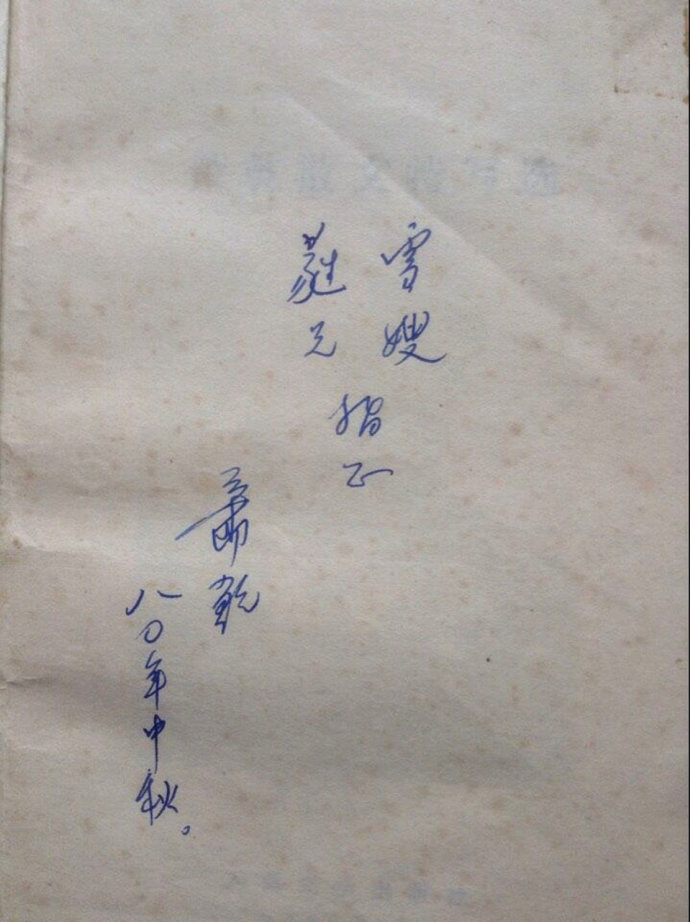 雪嫂
蕤兄
指正
萧乾
八〇年中秋。